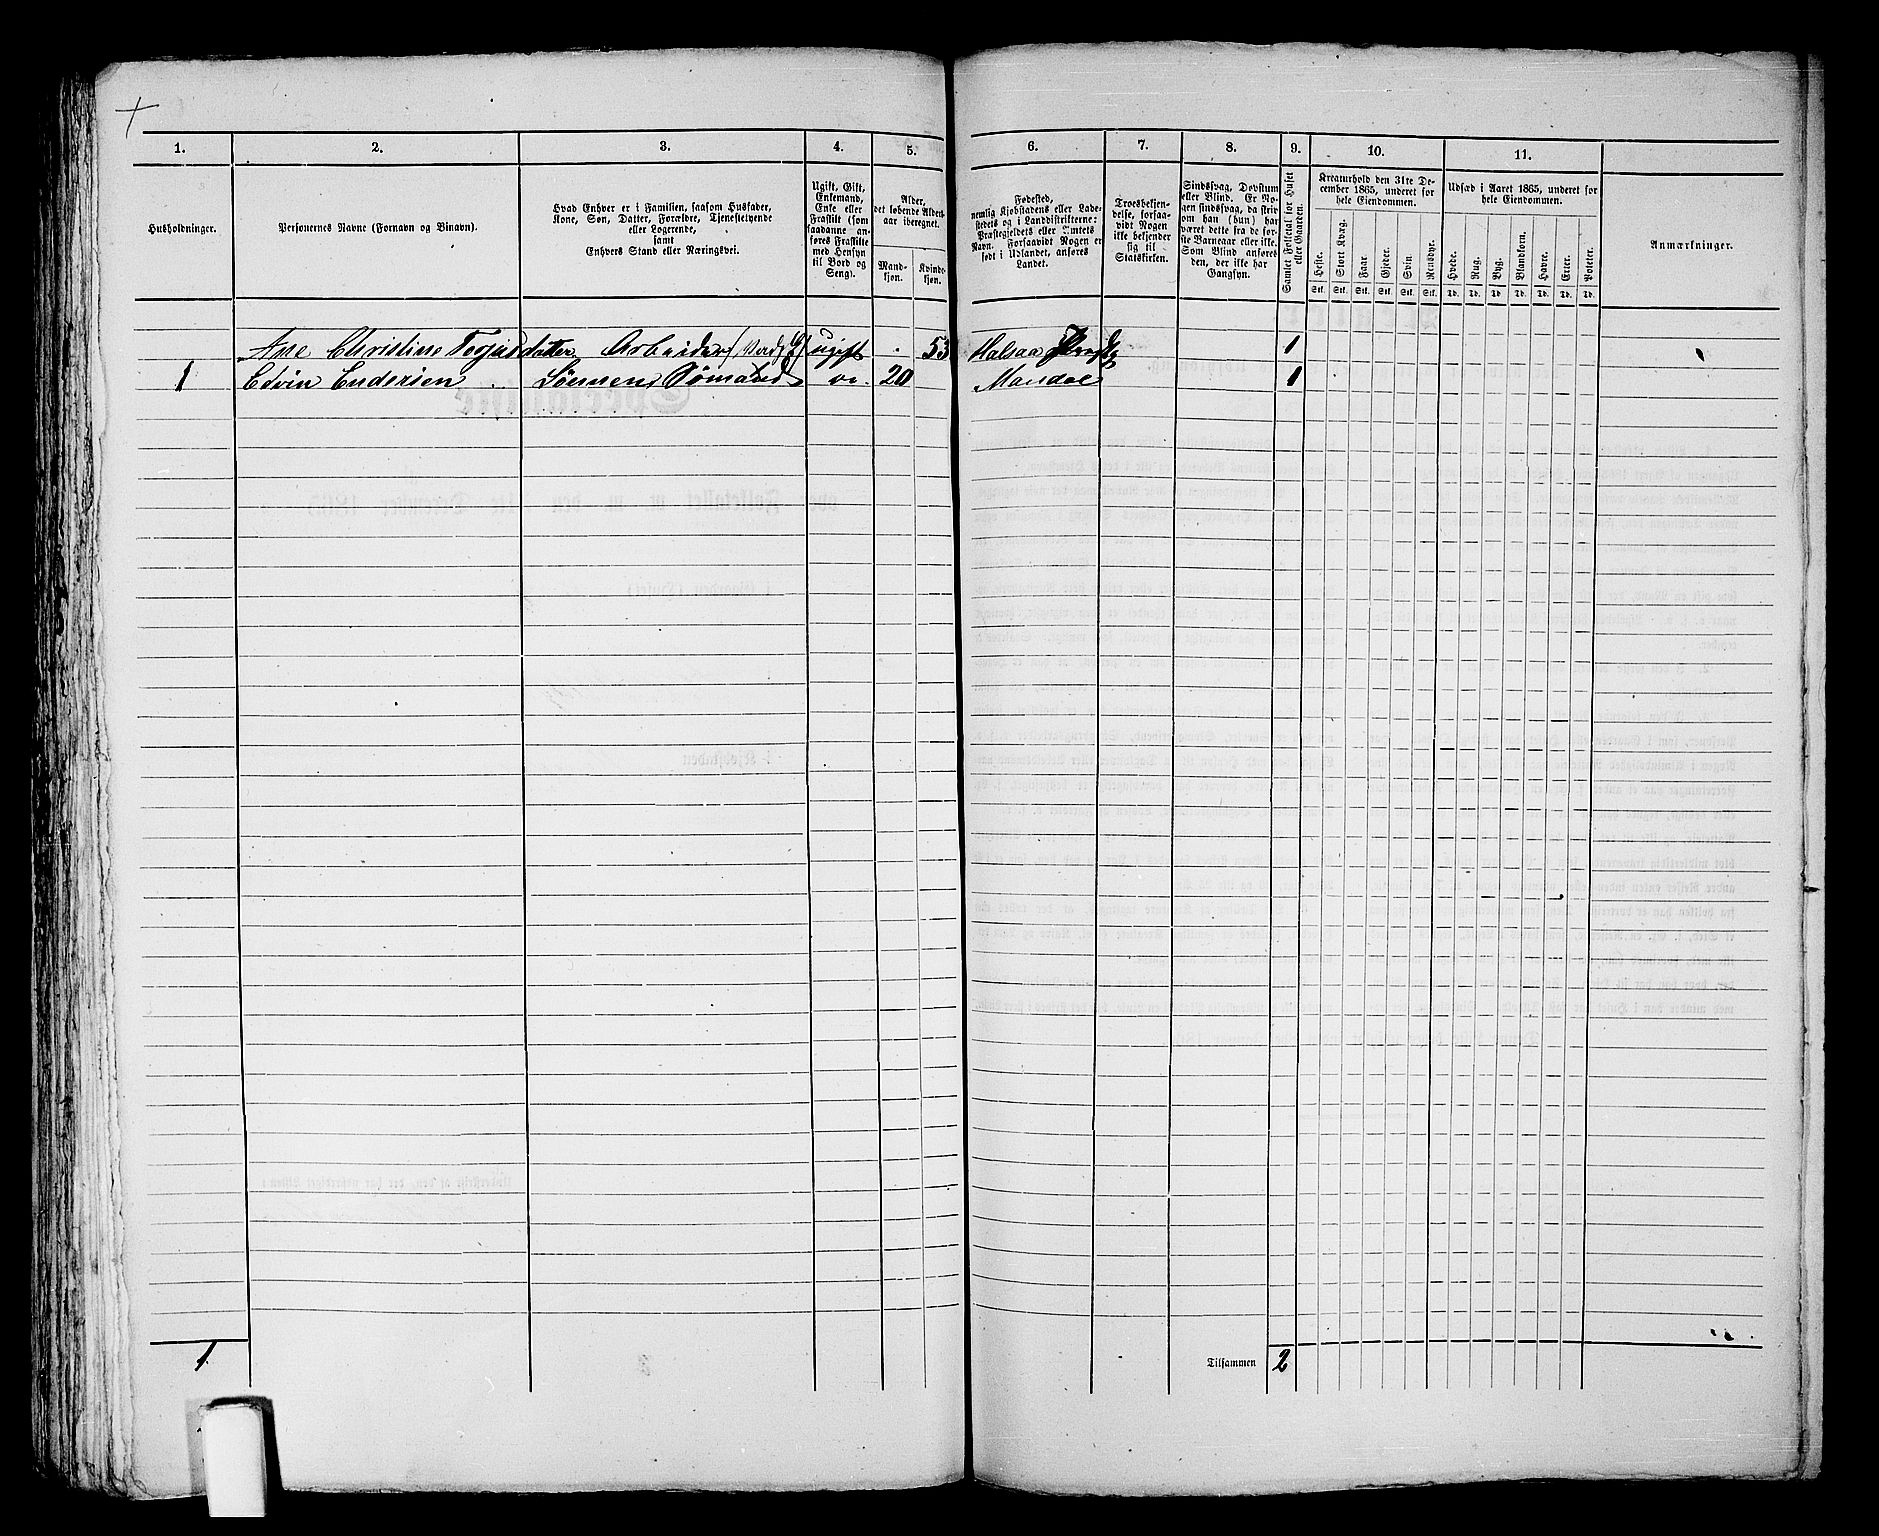 1. 2. 3. 4. 5. 6. 7. 8. 9. 10. 11.
Husholdninger.
Personernes Navne (Fornavn og Binavn).
Hvad Enhver er i Familien, saasom Husfader,
Kone, Søn, Datter, Forældre, Tjenestetyende
eller Logerende,
samt
Enhvers Stand eller Næringsvei.
Ugift, Gift,
Enkemand,
Enke eller
Fraskilt (som
saadanne an-
føres Fraskilte
med Hensyn
til Bord og
Seng).
Alder,
det løbende Alders-
aar iberegnet.
Mand-
kjøn.
Kvinde-
kjøn.
Fødested,
nemlig Kjøbstadens eller Lade-
stedets og i Landdistrikterne:
Præstegjeldets eller Amtets
Navn. Forsaavidt Nogen er
født i Udlandet, anføres
Landet.
Troesbekjen-
delse, forsaa-
vidt Nogen
ikke bekjender
sig til
Statskirken.
Sindssvag, Døvstum
eller Blind. Er No-
gen sindssvag, da skriv
om han (hun) har
været dette fra de før-
ste Barneaar eller ikke.
Som Blind anføres
den, der ikke har
Gangsyn.
Samlet Folketal for Huset
eller Gaarden.
Kreaturhold den 31te De-
cember 1865, underet for
hele Eiendommen.
Heste. Stort Kvæg. Faar. Gjeder. Svin. Rensdyr.
Stk. Stk. Stk. Stk. Stk. Stk.
Udsæd i Aaret 1865, underet for
hele Eiendommen.
Hvede. Rug. Byg. Blandkorn. Havre. Erter. Poteter.
Td. Td. Td. Td. Td. Td. Td.
Anmærkninger.
Ane Christine Torjusdatter Arbeider ugift 53 Halsaa 1
1 Edvin Endersen Sønnen, Sømand 20 Mandal 1
1 Tilsammen 2